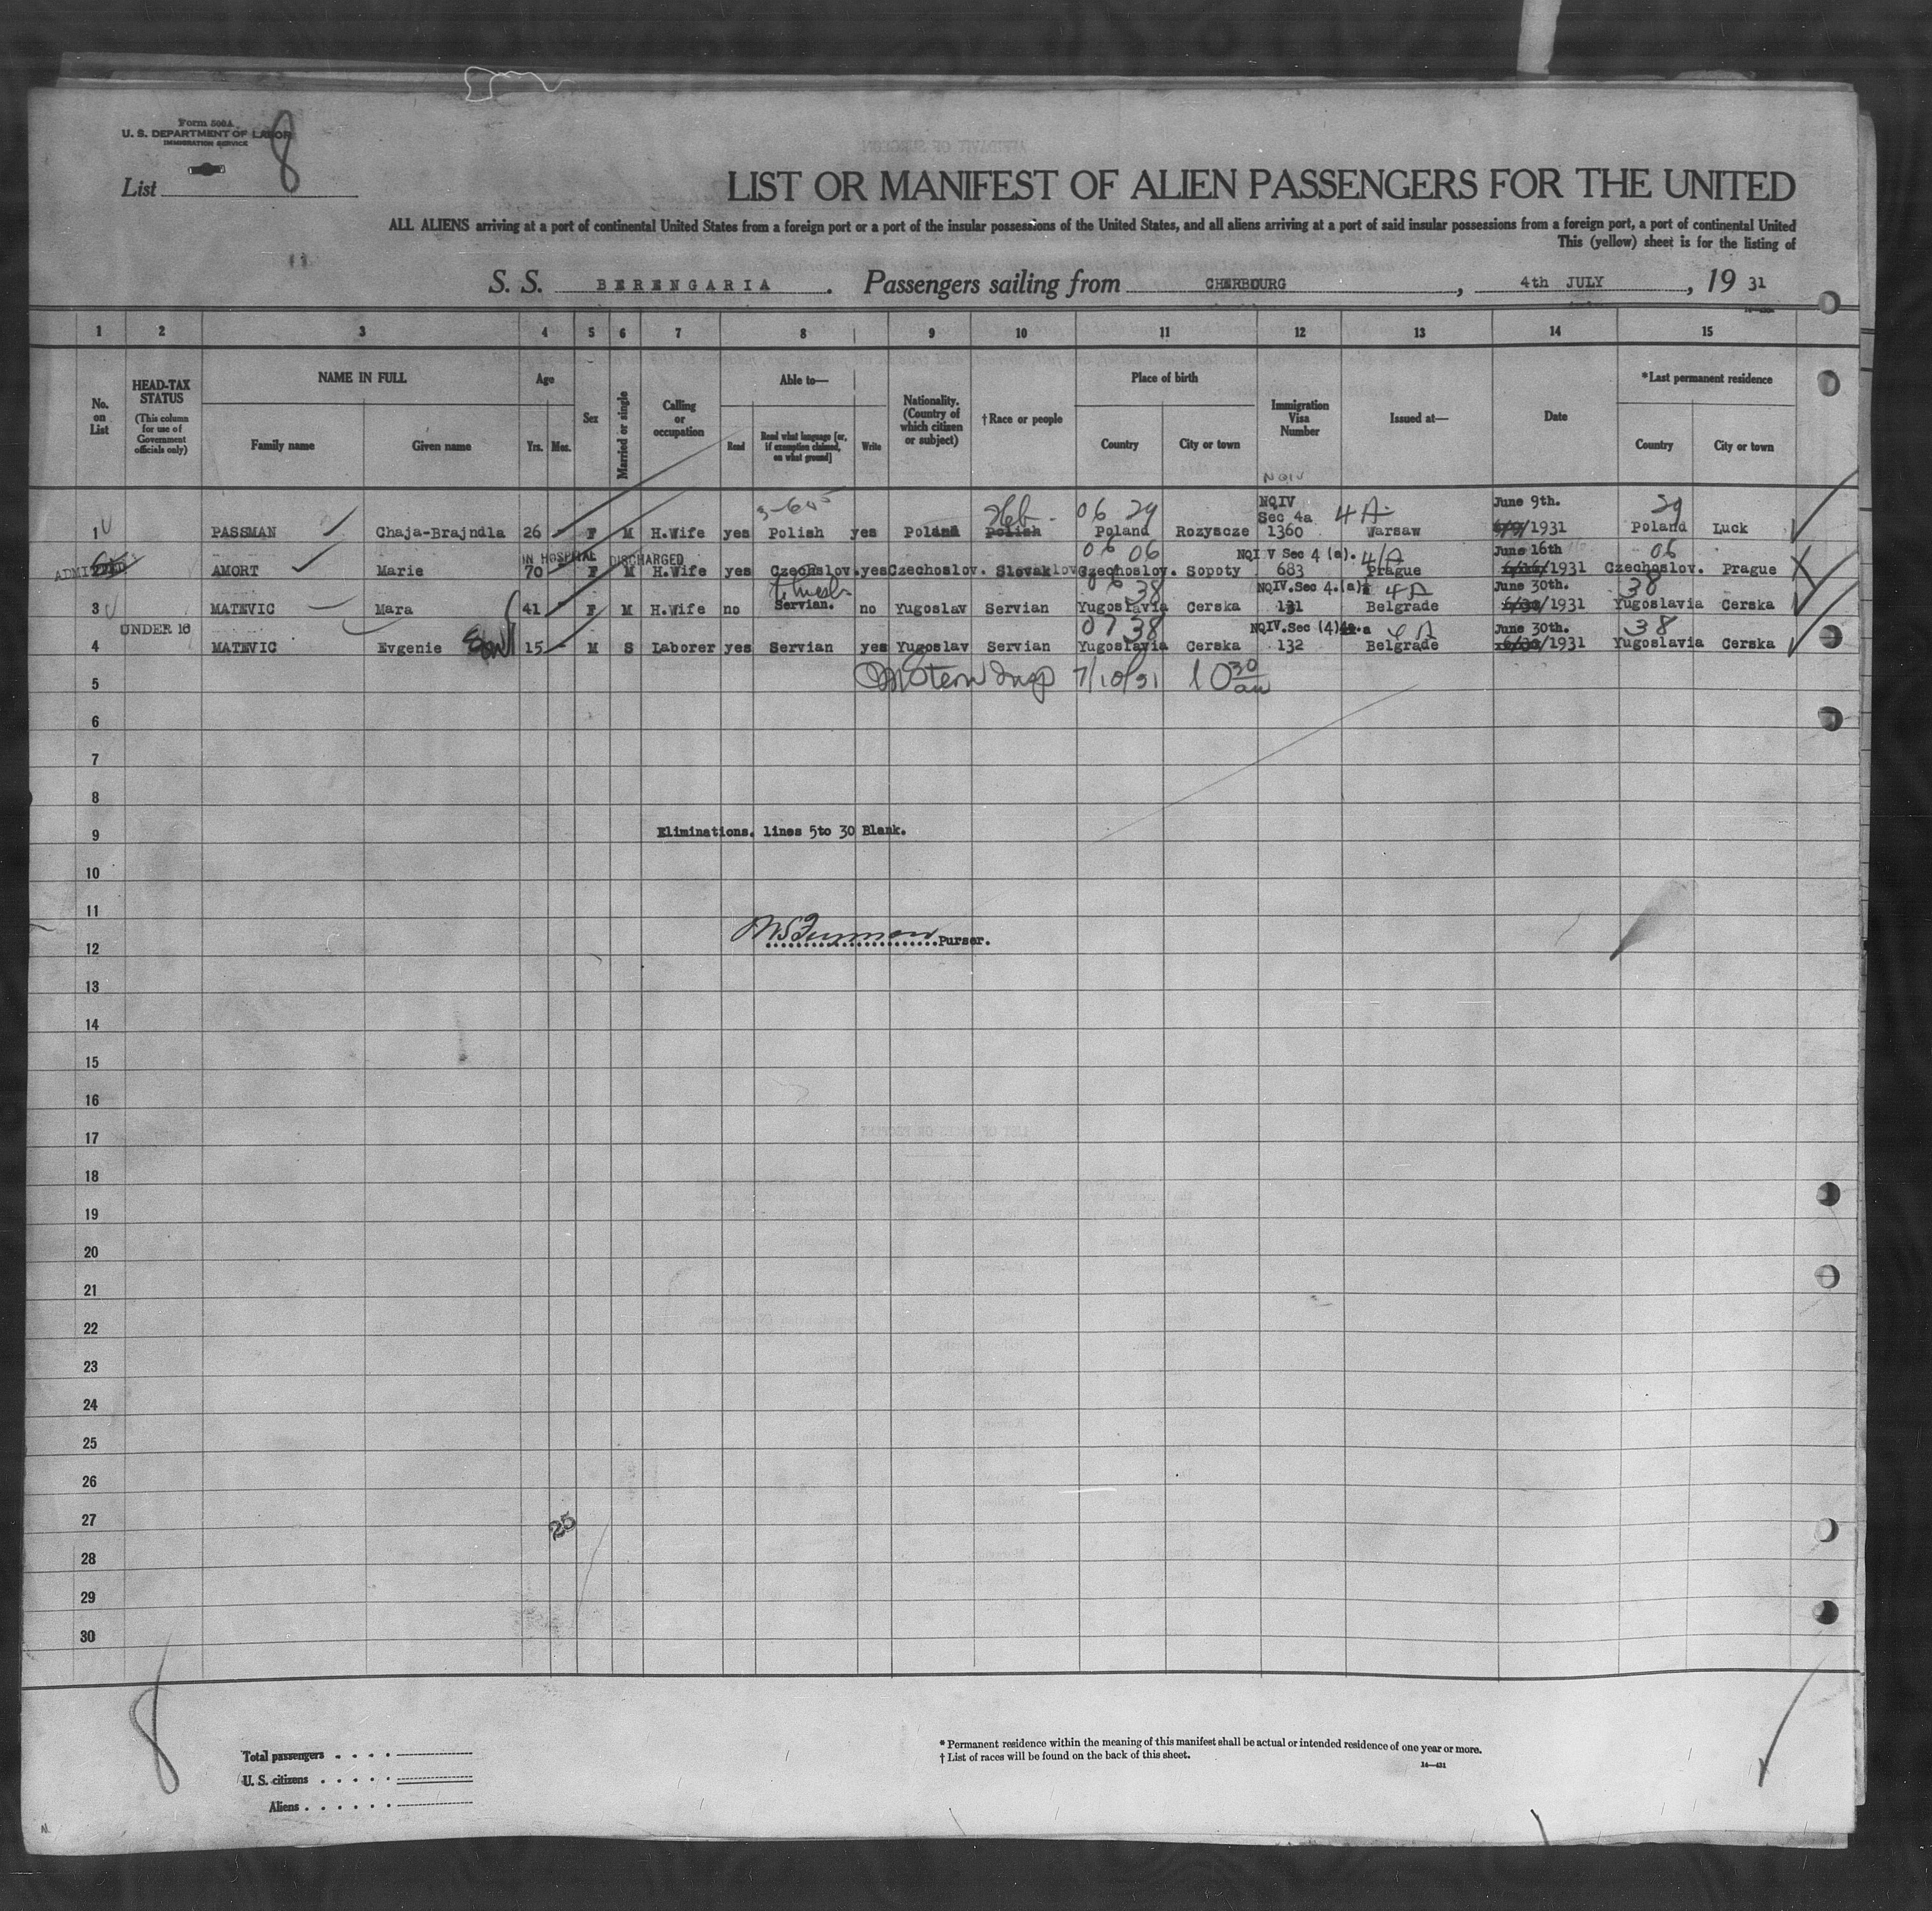 Form 500A
U. S. DEPARTMENT OF LABOR
IMMIGRATION SERVICE
List 8
LIST OR MANIFEST OF ALIEN PASSENGERS FOR THE UNITED
ALL ALIENS arriving at a port of continental United States from a foreign port or a port of the insular possessions of the United States, and all aliens arriving at a port of said insular possessions from a foreign port, a port of continental United
This (yellow) sheet is for the listing of
S. S. BERENGARIA. Passengers sailing from CHERBOURG, 4th JULY, 19 31
1 2 3 4 5 6 7 8 9 10 11 12 13 14 15
No. on List
HEAD-TAX STATUS (This column for use of Government officials only)
NAME IN FULL
Family name
Given name
Age
Yrs. Mos.
Sex
Married or single
Calling or occupation
Able to—
Read
Read what language [or, if exemption claimed, on what ground]
Write
Nationality. (Country of which citizen or subject)
†Race or people
Place of birth
Country
City or town
Immigration Visa Number
Issued at—
Date
*Last permanent residence
Country
City or town
NQIV
3-60 Heb. 06 29 NQIV Sec 4a 4A June 9th. 29
1 PASSMAN Chaja-Brajndla 26 - F M H.Wife yes Polish yes Poland Polish Poland Rozyscze 1360 Warsaw 6/9/1931 Poland Luck
ADMITTED IN HOSPITAL DISCHARGED 06 06 NQI V Sec 4 (a). 4/A June 16th 06
AMORT Marie 70 - F M H.Wife yes Czechoslov. yes Czechoslov. Slovak Czechoslov. Sopoty 683 Prague 6/16/1931 Czechoslov. Prague
38 NQIV.Sec 4.(a) 4A June 30th. 38
3 MATEVIC Mara 41 - F M H.Wife no Servian. no Yugoslav Servian Yugoslavia Cerska 131 Belgrade 6/30/1931 Yugoslavia Cerska
UNDER 16 07 38 NQIV.Sec (4) a June 30th. 38
4 MATEVIC Evgenie Son 15 - M S Laborer yes Servian yes Yugoslav Servian Yugoslavia Cerska 132 Belgrade 6/30/1931 Yugoslavia Cerska
5 Stern Insp 7/10/31 10 30 am
6
7
8
9 Eliminations. lines 5to 30 Blank.
10
11
12 Purser.
13
14
15
16
17
18
19
20
21
22
23
24
25
26
27 25
28
29
30
8
Total passengers
U. S. citizens
Aliens
* Permanent residence within the meaning of this manifest shall be actual or intended residence of one year or more.
† List of races will be found on the back of this sheet.
14—431